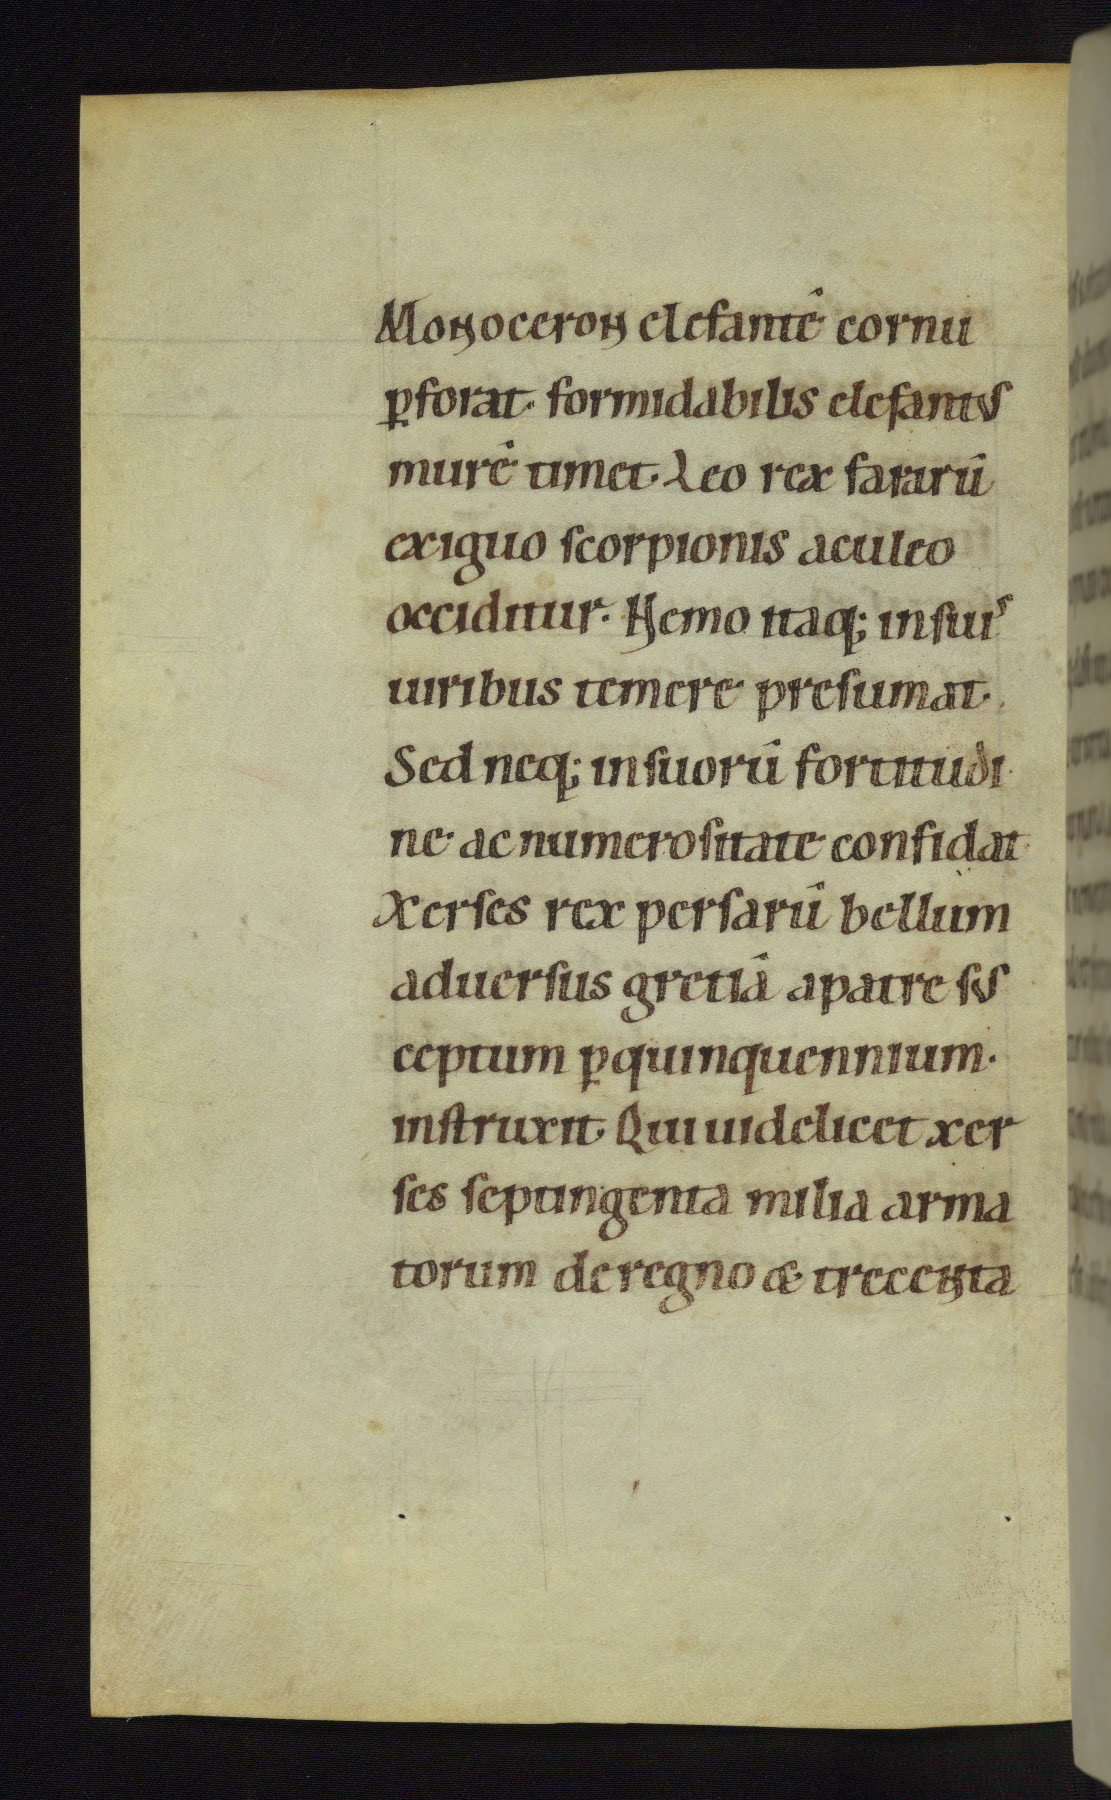 Monoceron elefantē cornu
ꝑforat. formidabilis elefantuſ
murē timet. Leo rex fararū
exiguo ſcorpionis aculeo
occiditur. Nemo itaq; in ſuiˢ
uiribus temere preſumat.
Sed neq; in ſuorū fortitudi
ne ac numeroſitate confidat
Xerſes rex perſarū bellum
aduerſus gretiā a patre ſuſ
ceptum ꝑ quinquennium.
inſtruxit. Qui uidelicet xer
ſes ſeptingenta milia arma
torum de regno & trecenta